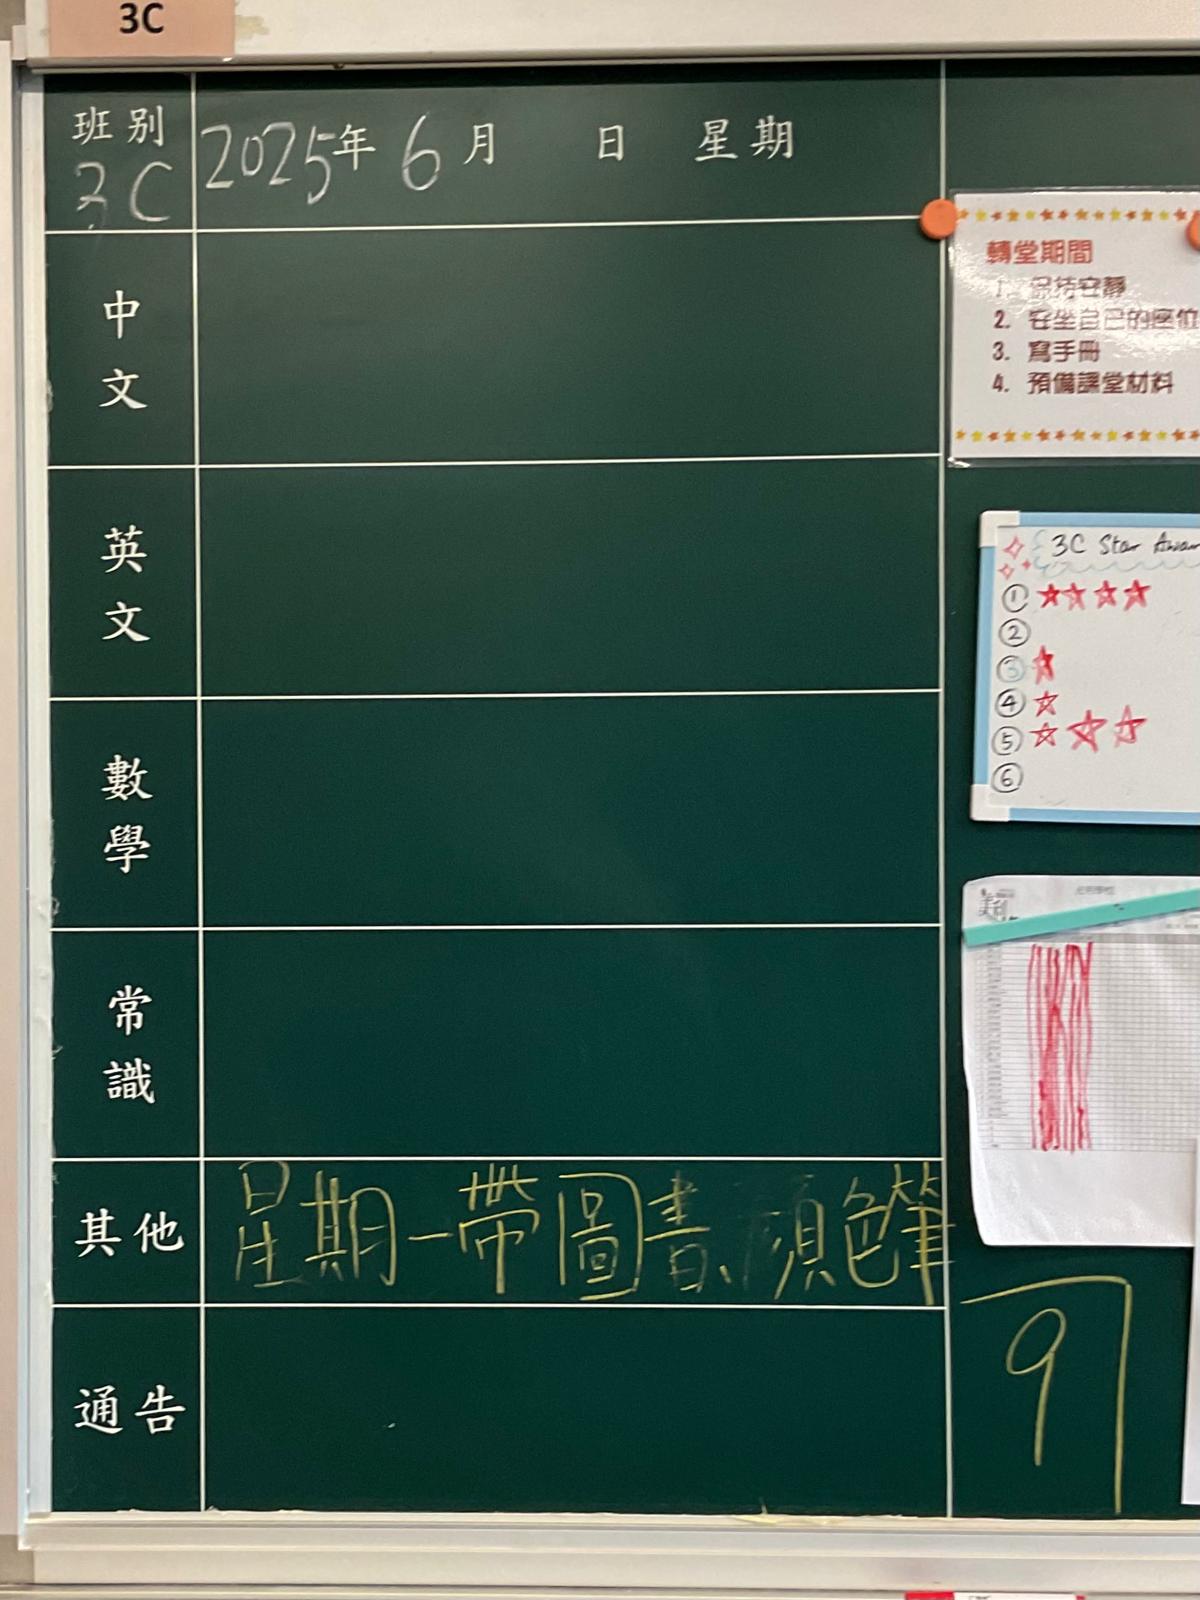 3C
班別
3C
2025年 6月 日 星期
中文
英文
數學
常識
其他
星期一帶圖書、顏色筆
通告
轉堂期間
1. 保持安靜
2. 安坐自己的座位
3. 寫手冊
4. 預備課堂材料
3C Star
①
②
③
④
⑤
⑥
9